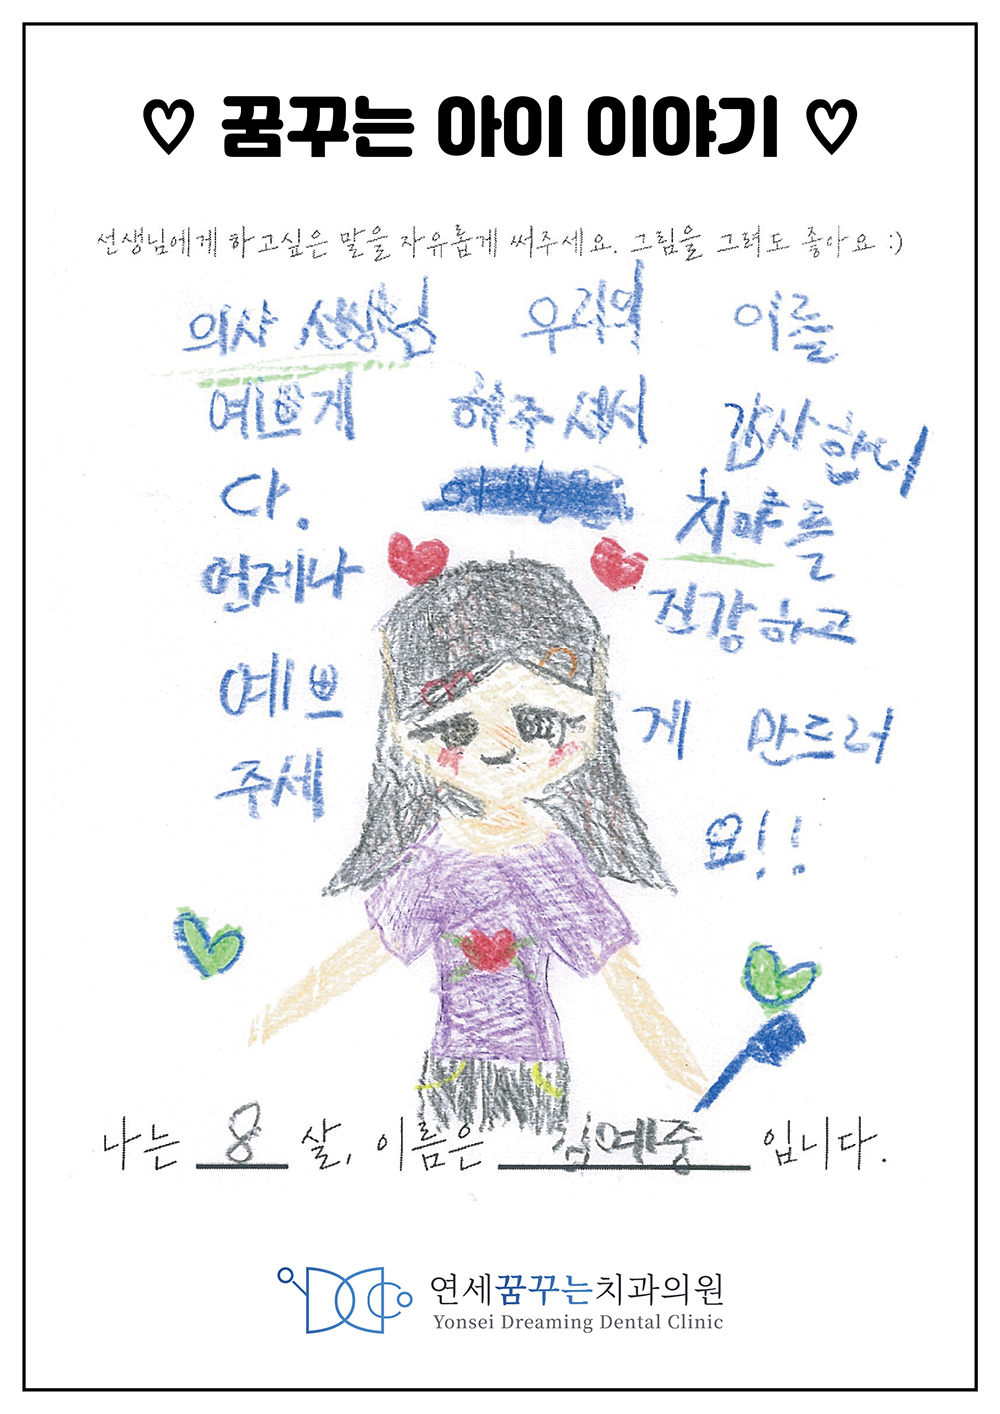 ♡ 꿈꾸는 아이 이야기 ♡
선생님에게 하고싶은 말을 자유롭게 써주세요. 그림을 그려도 좋아요 :)
의사 선생님 우리의 이를
예쁘게 해주셔서 감사합니
다. 치아를
언제나 건강하고
예쁘게 만드러
주세요!!
나는 8 살, 이름은 김예중 입니다.
연세꿈꾸는치과의원
Yonsei Dreaming Dental Clinic